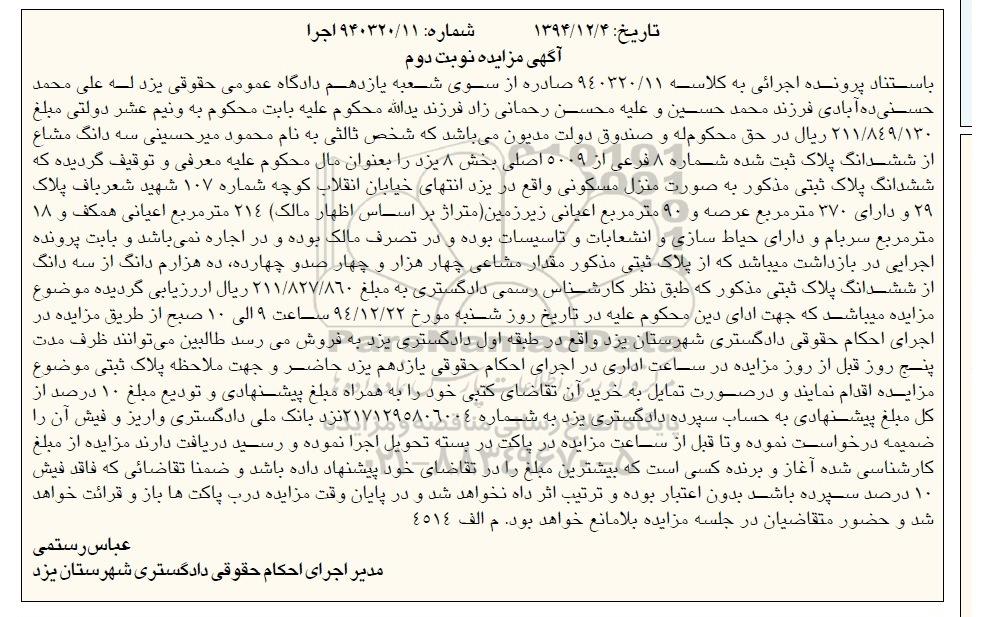 تاریخ: ۱۳۹۴/۱۲/۴ شماره: ۹۴۰۳۲۰/۱۱ اجرا
آگهی مزایده نوبت دوم
باستناد پرونده اجرائی به کلاسه ۹٤۰۳۲۰/۱۱ صادره از سوی شعبه یازدهم دادگاه عمومی حقوقی یزد له علی محمد
حسنی‌ده‌آبادی فرزند محمد حسین و علیه محسن رحمانی زاد فرزند یدالله محکوم علیه بابت محکوم به ونیم عشر دولتی مبلغ
۲۱۱/۸٤۹/۱۳۰ ریال در حق محکوم‌له و صندوق دولت مدیون می‌باشد که شخص ثالثی به نام محمود میرحسینی سه دانگ مشاع
از ششدانگ پلاک ثبت شده شماره ۸ فرعی از ۵۰۰۹ اصلی بخش ۸ یزد را بعنوان مال محکوم علیه معرفی و توقیف گردیده که
ششدانگ پلاک ثبتی مذکور به صورت منزل مسکونی واقع در یزد انتهای خیابان انقلاب کوچه شماره ۱۰۷ شهید شعرباف پلاک
۲۹ و دارای ۳۷۰ مترمربع عرصه و ۹۰ مترمربع اعیانی زیرزمین(متراژ بر اساس اظهار مالک) ۲۱٤ مترمربع اعیانی همکف و ۱۸
مترمربع سربام و دارای حیاط سازی و انشعابات و تاسیسات بوده و در تصرف مالک بوده و در اجاره نمی‌باشد و بابت پرونده
اجرایی در بازداشت میباشد که از پلاک ثبتی مذکور مقدار مشاعی چهار هزار و چهار صدو چهارده، ده هزارم دانگ از سه دانگ
از ششدانگ پلاک ثبتی مذکور که طبق نظر کارشناس رسمی دادگستری به مبلغ ۲۱۱/۸۲۷/۸۶۰ ریال اررزیابی گردیده موضوع
مزایده میباشد که جهت ادای دین محکوم علیه در تاریخ روز شنبه مورخ ۹٤/۱۲/۲۲ ساعت ۹ الی ۱۰ صبح از طریق مزایده در
اجرای احکام حقوقی دادگستری شهرستان یزد واقع در طبقه اول دادگستری یزد به فروش می رسد طالبین می‌توانند ظرف مدت
پنج روز قبل از روز مزایده در ساعت اداری در اجرای احکام حقوقی یازدهم یزد حاضر و جهت ملاحظه پلاک ثبتی موضوع
مزایده اقدام نمایند و درصورت تمایل به خرید آن تقاضای کتبی خود را به همراه مبلغ پیشنهادی و تودیع مبلغ ۱۰ درصد از
کل مبلغ پیشنهادی به حساب سپرده دادگستری یزد به شماره ۲۱۷۱۲۹۵۸۰۶۰۰٤نزد بانک ملی دادگستری واریز و فیش آن را
ضمیمه درخواست نموده وتا قبل از ساعت مزایده در پاکت در بسته تحویل اجرا نموده و رسید دریافت دارند مزایده از مبلغ
کارشناسی شده آغاز و برنده کسی است که بیشترین مبلغ را در تقاضای خود پیشنهاد داده باشد و ضمنا تقاضائی که فاقد فیش
۱۰ درصد سپرده باشد بدون اعتبار بوده و ترتیب اثر داه نخواهد شد و در پایان وقت مزایده درب پاکت ها باز و قرائت خواهد
شد و حضور متقاضیان در جلسه مزایده بلامانع خواهد بود. م الف ٤۵۱٤
عباس‌رستمی
مدیر اجرای احکام حقوقی دادگستری شهرستان یزد
ParsNamadData
پایگاه اطلاع رسانی مناقصه و مزایده
۰۲۱-۸۸۳۴۹۶۷۰-۵